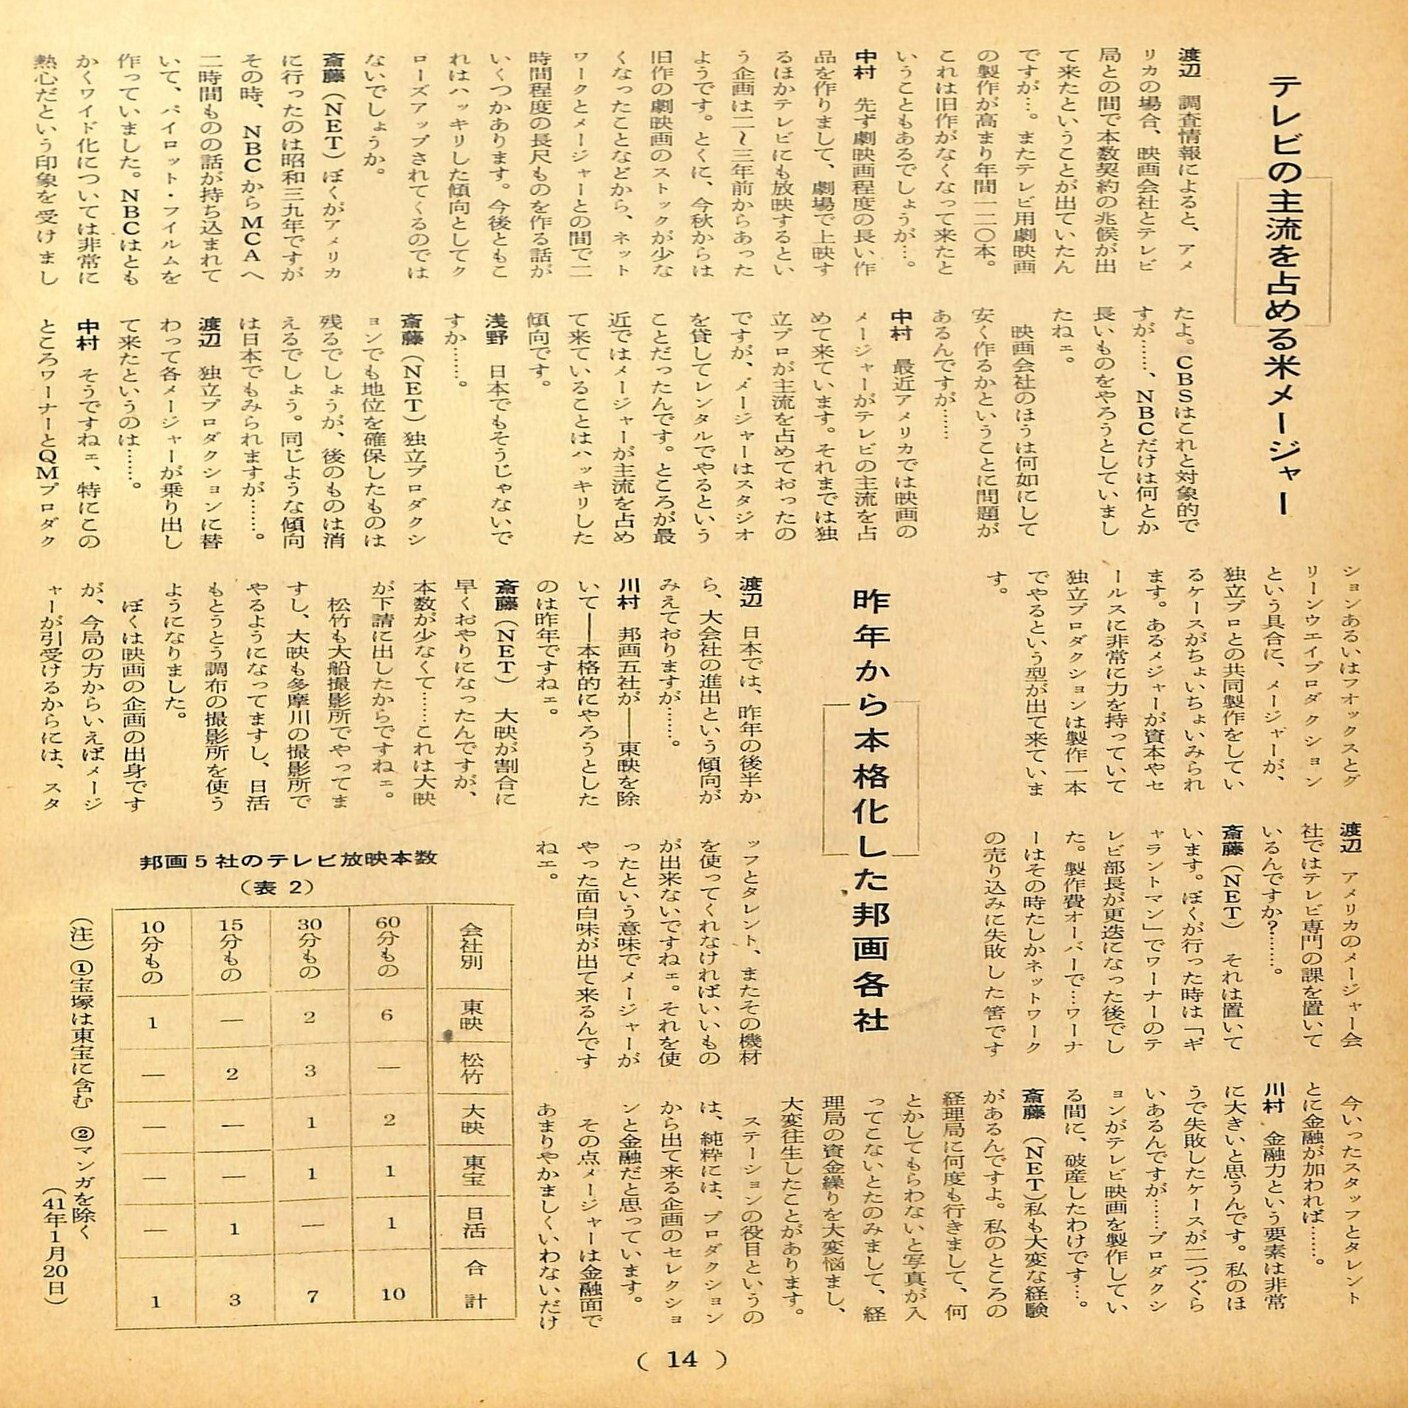 テレビの主流を占める米メージャー
渡辺　調査情報によると、アメ
リカの場合、映画会社とテレビ
局との間で本数契約の兆候が出
て来たということが出ていたん
ですが…。またテレビ用劇映画
の製作が高まり年間一二〇本。
これは旧作がなくなって来たと
いうこともあるでしょうが…。
中村　先ず劇映画程度の長い作
品を作りまして、劇場で上映す
るほかテレビにも放映するとい
う企画は二〜三年前からあった
ようです。とくに、今秋からは
旧作の劇映画のストックが少な
くなったことなどから、ネット
ワークとメージャーとの間で二
時間程度の長尺ものを作る話が
いくつかあります。今後ともこ
れはハッキリした傾向としてク
ローズアップされてくるのでは
ないでしょうか。
斎藤（NET）ぼくがアメリカ
に行ったのは昭和三九年ですが
その時、NBCからMCAへ
二時間ものの話が持ち込まれて
いて、パイロット・フイルムを
作っていました。NBCはとも
かくワイド化については非常に
熱心だという印象を受けまし
たよ。CBSはこれと対象的で
すが……、NBCだけは何とか
長いものをやろうとしていまし
たねェ。
映画会社のほうは何如にして
安く作るかということに問題が
あるんですが……
中村　最近アメリカでは映画の
メージャーがテレビの主流を占
めて来ています。それまでは独
立プロが主流を占めておったの
ですが、メージャーはスタジオ
を貸してレンタルでやるという
ことだったんです。ところが最
近ではメージャーが主流を占め
て来ていることはハッキリした
傾向です。
浅野　日本でもそうじゃないで
すか……。
斎藤（NET）独立プロダクシ
ョンでも地位を確保したものは
残るでしょうが、後のものは消
えるでしょう。同じような傾向
は日本でもみられますが……。
渡辺　独立プロダクションに替
わって各メージャーが乗り出し
て来たというのは……。
中村　そうですねェ、特にこの
ところワーナーとQMプロダク
ションあるいはフオックスとグ
リーンウエイプロダクション
という具合に、メージャーが、
独立プロとの共同製作をしてい
るケースがちょいちょいみられ
ます。あるメジャーが資本やセ
ールスに非常に力を持っていて
独立プロダクションは製作一本
でやるという型が出て来ていま
す。
昨年から本格化した邦画各社
渡辺　日本では、昨年の後半か
ら、大会社の進出という傾向が
みえておりますが……。
川村　邦画五社が――東映を除
いて――本格的にやろうとした
のは昨年ですねェ。
斎藤（NET）　大映が割合に
早くおやりになったんですが、
本数が少なくて……これは大映
が下請に出したからですねェ。
松竹も大船撮影所でやってま
すし、大映も多摩川の撮影所で
やるようになってますし、日活
もとうとう調布の撮影所を使う
ようになりました。
ぼくは映画の企画の出身です
が、今局の方からいえばメージ
ャーが引受けるからには、スタ
ッフとタレント、またその機材
を使ってくれなければいいもの
が出来ないですねェ。それを使
ったという意味でメージャーが
やった面白味が出て来るんです
ねェ。
渡辺　アメリカのメージャー会
社ではテレビ専門の課を置いて
いるんですか？……。
斎藤（NET）　それは置いて
います。ぼくが行った時は「ギ
ャラントマン」でワーナーのテ
レビ部長が更迭になった後でし
た。製作費オーバーで…ワーナ
ーはその時たしかネットワーク
の売り込みに失敗した筈です
今いったスタッフとタレント
とに金融が加われば……。
川村　金融力という要素は非常
に大きいと思うんです。私のほ
うで失敗したケースが二つぐら
いあるんですが……プロダクシ
ョンがテレビ映画を製作してい
る間に、破産したわけです…。
斎藤　（NET）私も大変な経験
があるんですよ。私のところの
経理局に何度も行きまして、何
とかしてもらわないと写真が入
ってこないとたのみまして、経
理局の資金繰りを大変悩まし、
大変往生したことがあります。
ステーションの役目というの
は、純粋には、プロダクション
から出て来る企画のセレクショ
ンと金融だと思っています。
その点メージャーは金融面で
あまりやかましくいわないだけ
邦画5社のテレビ放映本数
（表2）
会社別　東映　松竹　大映　東宝　日活　合計
60分もの　6　―　2　1　1　10
30分もの　2　3　1　1　―　7
15分もの　―　2　―　―　1　3
10分もの　1　―　―　―　―　1
（注）①宝塚は東宝に含む　②マンガを除く
（41年1月20日）
（14）